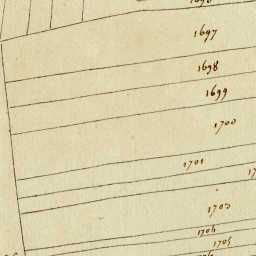 1697
1698
1699
1700
1701
1703
1704
1705